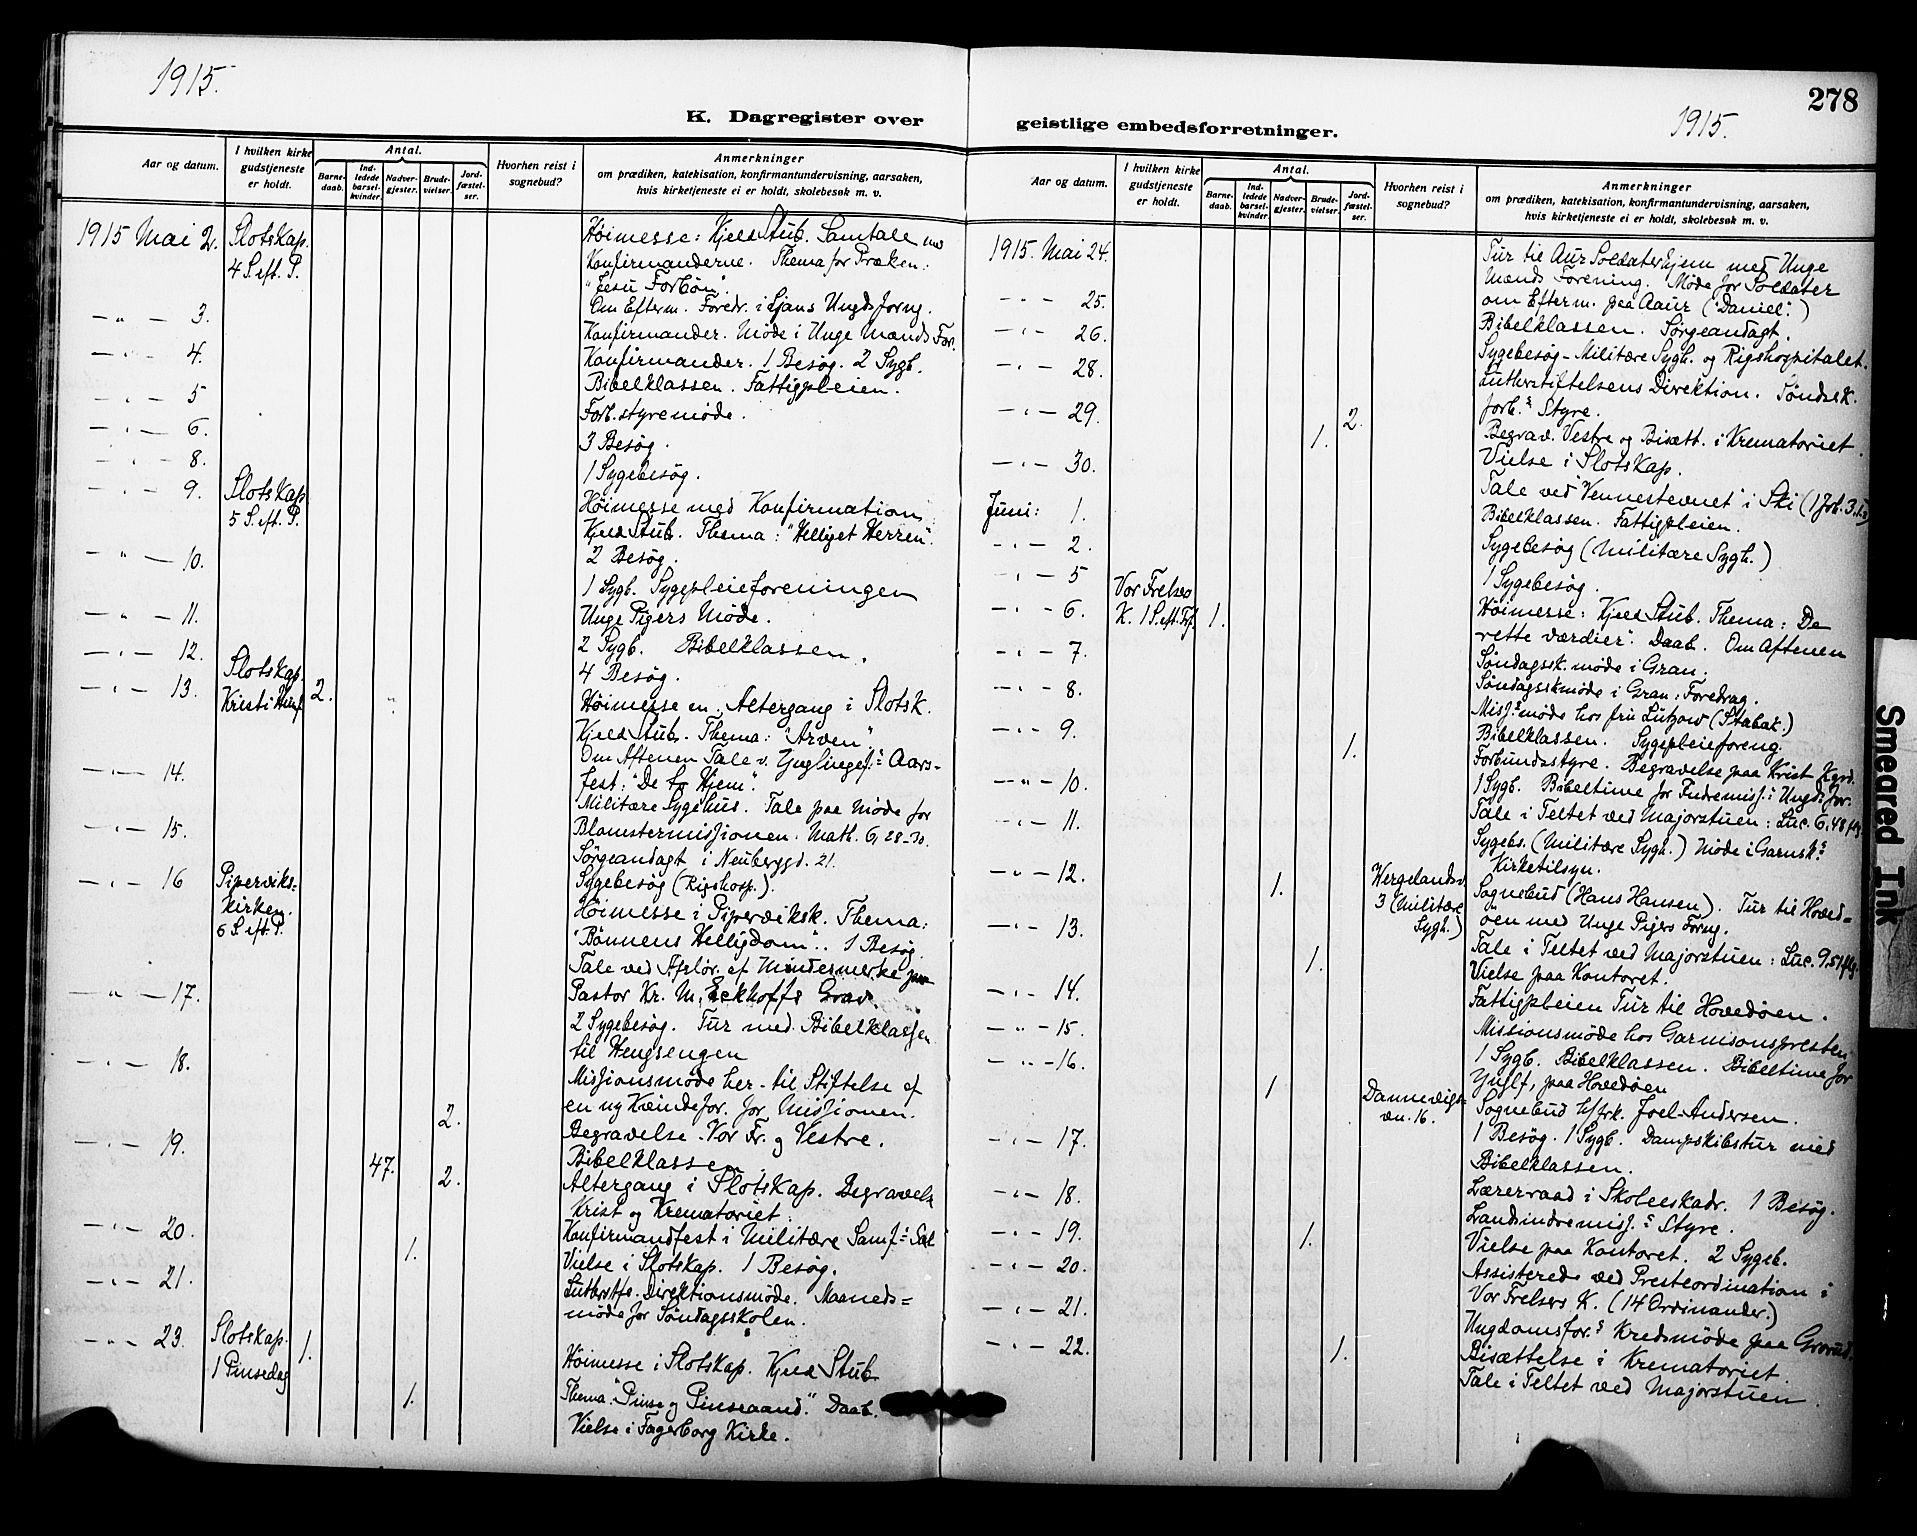 1915.
K. Dagregister over
Aar og datum.
I hvilken kirke gudstjeneste er holdt.
Antal.
Barne-daab.
Ind-ledede barsel-kvinder.
Nadver-gjester.
Brude-vielser.
Jord-fæstel-ser.
Hvorhen reist i sognebud?
Anmerkninger
om prædiken, katekisation, konfirmantundervisning, aarsaken,
hvis kirketjeneste ei er holdt, skolebesøk m. v.
1915 Mai 2. Slotskap. Høimesse: Kjeld Stub. Samtale m
4 S. eft. P. Konfirmanderne. Thema for Præken:
"Jesu Forbøn".
Om Efterm. Foredr. i Ljans Ungdsforng.
— " — 3. Konfirmander. Møde i Unge Mænds For.
— " — 4. Konfirmander. 1 Besøg. 2 Sygb.
Bibelklassen. Fattigpleien.
— " — 5 Forb.styremøde.
— " — 6. 3 Besøg.
— " — 8. 1 Sygebesøg.
— " — 9. Slotskap. Høimesse med Konfirmation
5 S. eft. P. Kjeld Stub. Thema: "Helliget Herren".
2 Besøg.
— " — 10. 1 Sygb. Sygepleieforeningen
— " — 11. Unge Pigers Møde.
— " — 12. 2 Sygb. Bibelklassen.
Slotskap. 4 Besøg.
— " — 13. Kristi Himf. 2. Høimesse en. Altergang i Slotsk.
Kjeld Stub. Thema: "Arven"
Om Aftenen Tale v. Ynglingef.s Aars-
— " — 14. fest: "De to Hjem".
Militære Sygehus. Tale paa Møde for
— " — 15. Blomstermissionen. Math. 6, 28-30.
Sørgeandagt i Neuberggd. 21.
— " — 16 Piperviks- Sygebesøg (Rigshosp.).
kirken. Høimesse i Piperviksk. Thema:
6 S. eft. P. "Bønnens Helligdom". 1 Besøg.
Tale ved Afslør. af Mindesmerke paa
— " — 17. Pastor Kr. M. Eckhoffs Grav.
2 Sygebesøg. Tur med Bibelklassen
til Hengsengen
— " — 18. Missionsmøde her - til Stiftelse af
en ny Kvindefor. for Missionen.
2. Begravelse - Vor Fr. og Vestre.
— " — 19. Bibelklassen
47. 2. Altergang i Slotskap. Begravels
Krist og Krematoriet.
— " — 20. Konfirmandfest i Militære Samf.s Sal
1. Vielse i Slotskap. 1 Besøg.
— " — 21. Lutherstfs. Direktionsmøde. Maaneds=
møde for Søndagsskolen.
— " — 23. Slotskap. 1. Høimesse i Slotskap. Kjeld Stub
1 Pinsedag Thema: "Pinse og Pinseaand." Daab.
1. Vielse i Fagerborg Kirke.
278
1915.
geistlige embedsforretninger.
Aar og datum.
I hvilken kirke gudstjeneste er holdt.
Antal.
Barne-daab.
Ind-ledede barsel-kvinder.
Nadver-gjester.
Brude-vielser.
Jord-fæstel-ser.
Hvorhen reist i sognebud?
Anmerkninger
om prædiken, katekisation, konfirmantundervisning, aarsaken,
hvis kirketjeneste ei er holdt, skolebesøk m. v.
1915. Mai 24. Tur til Aur Soldaterhjem med Unge
Mænds Forening. Møde for Soldater
— " — 25. om Efterm. paa Aaur ("Daniel".)
— " — 26. Bibelklassen. Sørgeandagt.
— " — 28. Sygebesøg - Militære Sygh. og Rigshospitalet.
Lutherstiftelsens Direktion. Søndsk.
— " — 29. forb.s Styre.
2. Begrav. Vestre og Bisætt. i Krematoriet.
1. Vielse i Slotskap.
— " — 30. Tale ved "Vennestevnet" i Ski (1 Joh. 3.1.2)
Juni: 1. Bibelklassen. Fattigpleien.
— " — 2. Sygebesøg (Militære Sygh.)
— " — 5 1 Sygebesøg.
Vor Frelses
— " — 6. K. 1 S. eft. Trf. 1. Høimesse: Kjeld Stub. Thema: "De
rette værdier". Daab. Om Aftenen
— " — 7. Søndagssk.møde i Gran.
— " — 8. Søndagsskmøde i Gran: Foredrag.
Miss.smøde hos fru Lützow (Stabæk.)
— " — 9. Bibelklassen. Sygepleieforeng.
1. Forbundsstyre. Begravelse paa Krist Kgrd.
— " — 10. 1 Sygb. Bibeltime for Indremiss.s Ungdsfor.
— " — 11. Tale i Teltet ved Majorstuen: Luc. 6, 48 flg.
Sygebs. (Militære Sygh.) Møde i Garnsk.s
Kirketilsyn.
— " — 12. 1. Wergelandsv. 3 (Militære Sygh.) Sognebud (Hans Hansen). Tur til Hoved=
øen med Unge Pigers Forng.
— " — 13. Tale i Teltet ved Majorstuen: Luc. 9.51 flg.
1. Vielse paa Kontoret.
— " — 14. Fattigpleien Tur til Hovedøen.
— " — 15. Missionsmøde hos Garnisonspresten
— " — 16. 1 Sygb. Bibelklassen. Bibeltime for
Ynglf. paa Hovedøen
1 Dannevigs= vn. 16. Sognebud t/frk. Joel-Andersen.
— " — 17. 1 Besøg. 1 Sygb. Dampskibstur med
Bibelklassen.
— " — 18. Lærerraad i Skoleeskadr. 1 Besøg.
Landsindremiss.s Styre.
— " — 19. 1. Vielse paa Kontoret. 2 Sygeb.
— " — 20. Assisterede ved Presteordination i
Vor Frelsers K. (14 Ordinander.)
— " — 21. Ungdomsfor.s Kredsmøde paa Grorud.
— " — 22. 1. Bisættelse i Krematoriet.
Tale i Teltet ved Majorstuen.
Smeared Ink